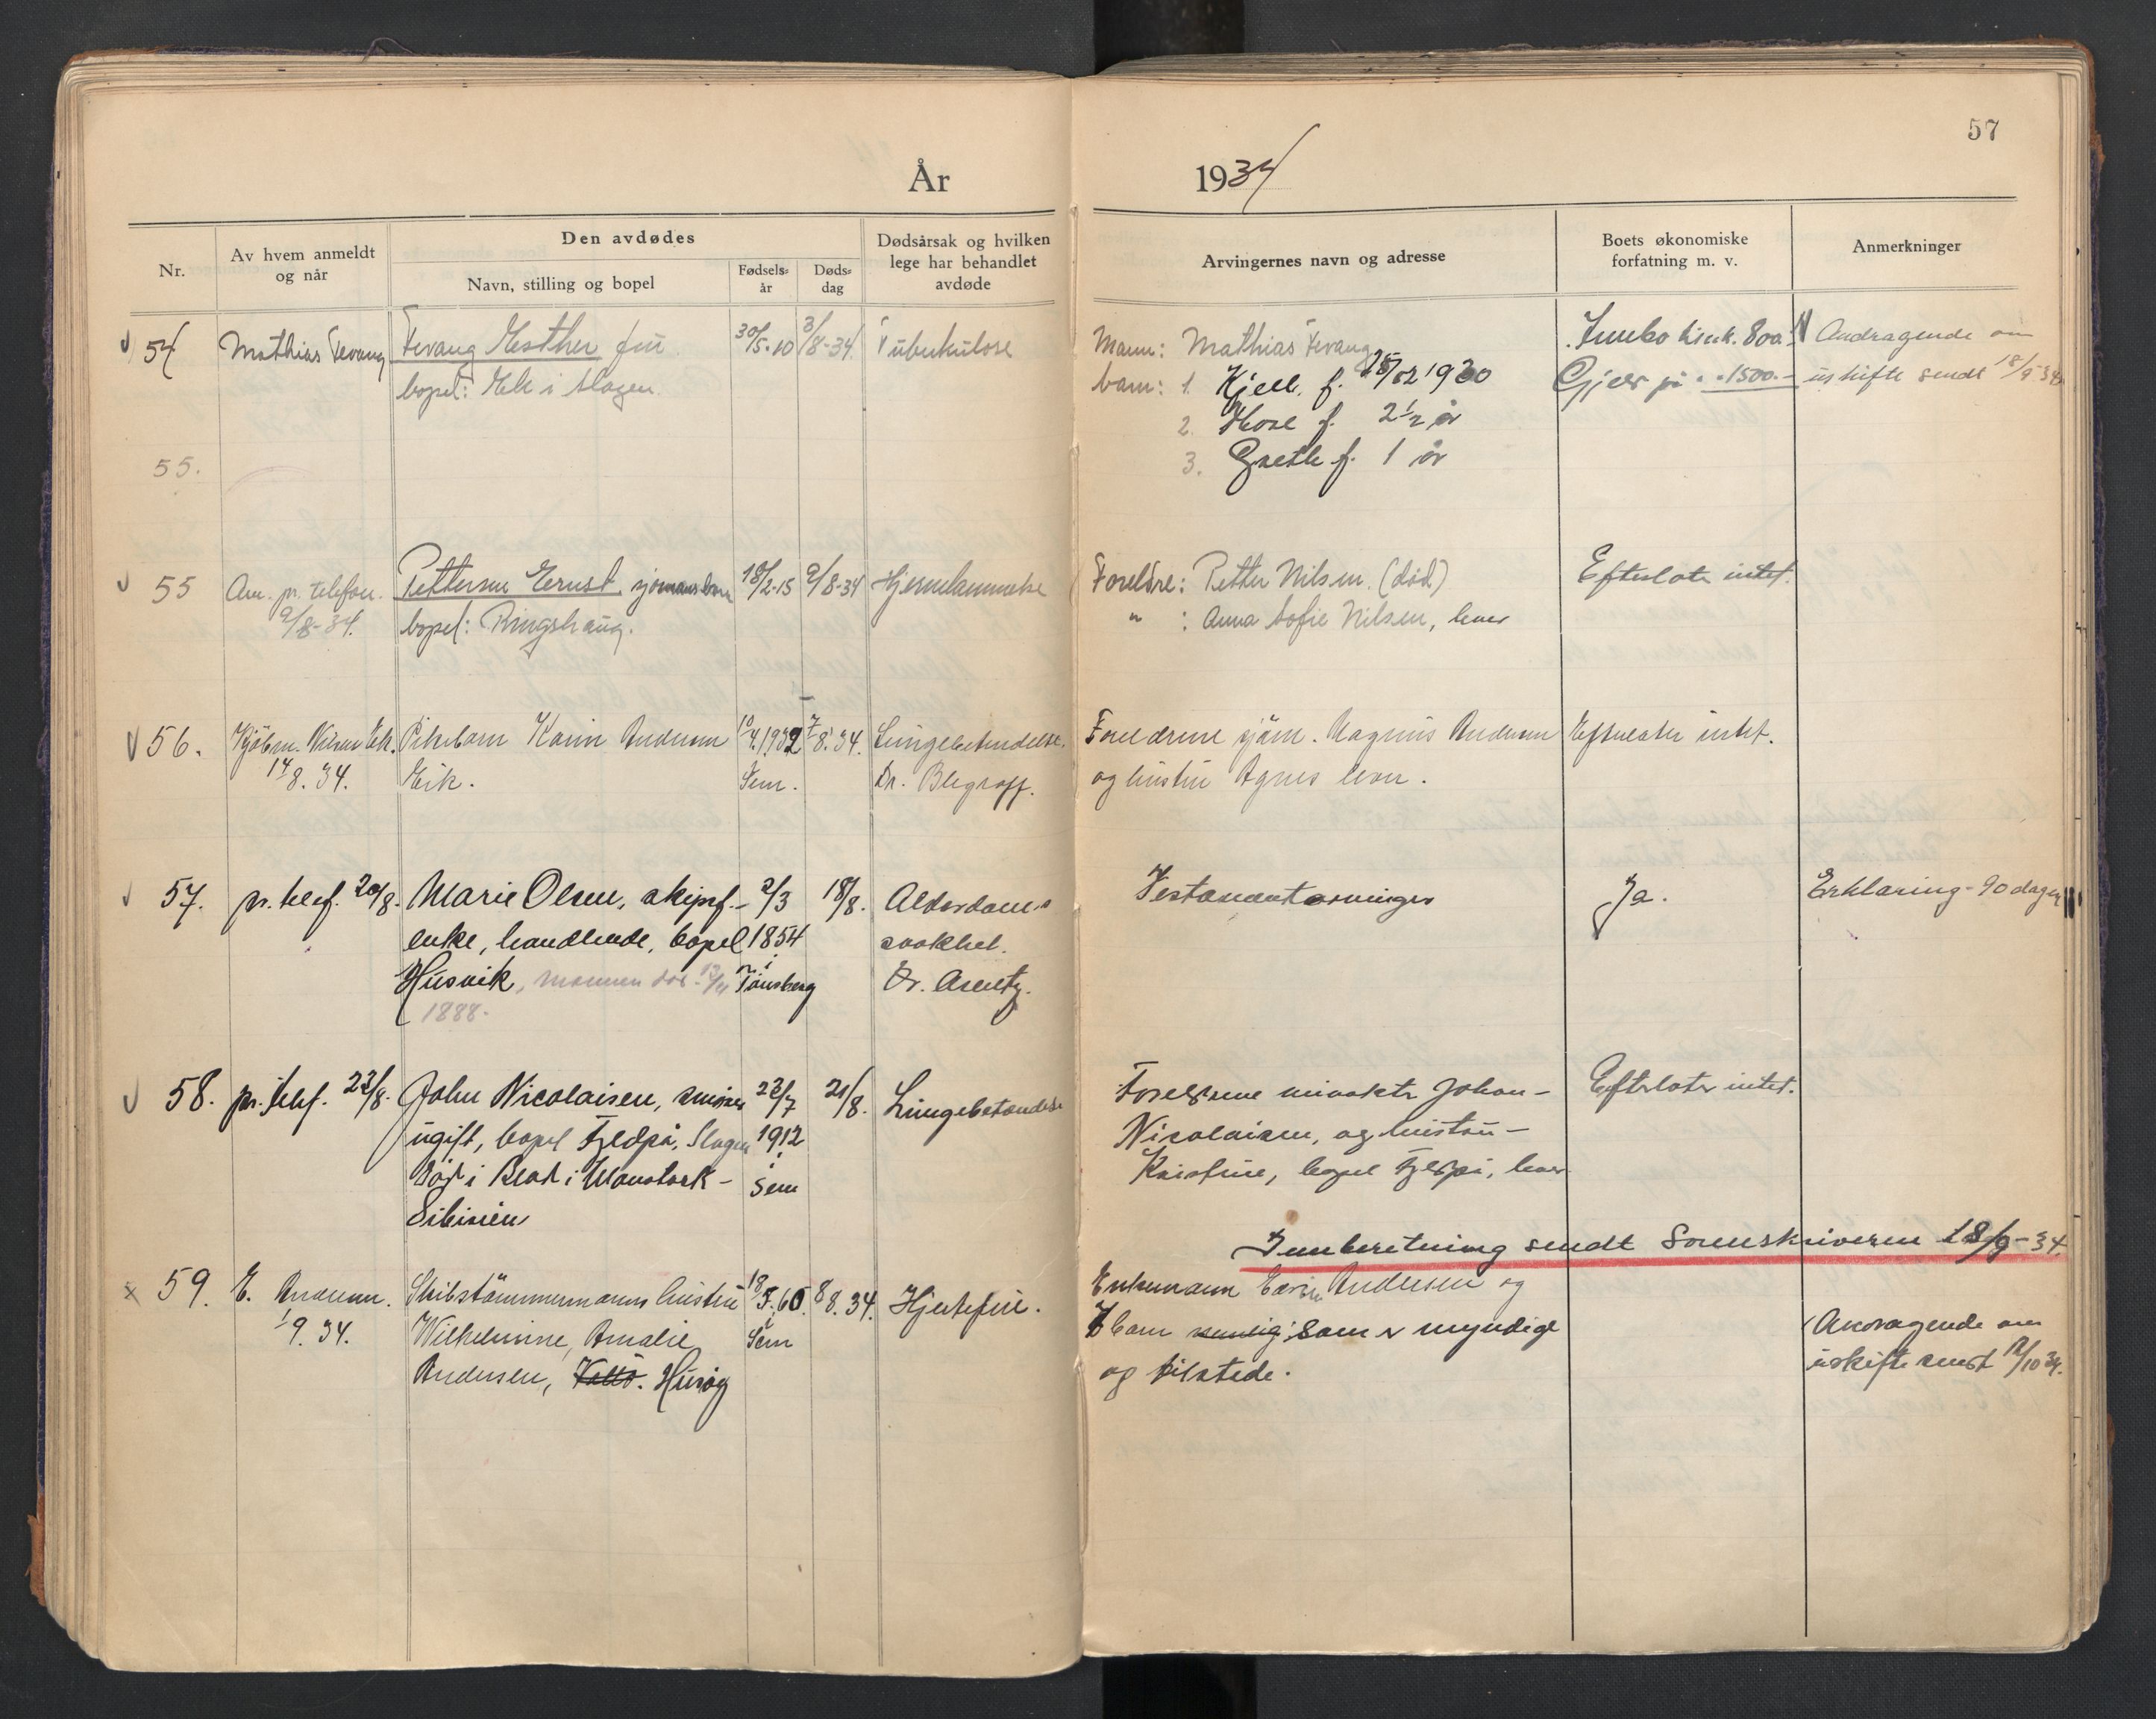 57
År 1934
Nr.
Av hvem anmeldt
og når
Den avdødes
Navn, stilling og bopel
Fødsels-
år
Døds-
dag
Dødsårsak og hvilken
lege har behandlet
avdøde
Arvingernes navn og adresse
Boets økonomiske
forfatning m. v.
Anmerkninger
54 Mathias Fevang Fevang Esther fru 30/5-10 3/8-34 Tuberkulose
bopel: Eik i Slagen.
Mann: Mathias Fevang
barn: 1. Kjell f. 1930
2. f. 2 1/2 år
3. Grethe f. 1 år
Innbo 800
Gjeld på 1500.-
Andragende om
uskifte sendt 18/9-34
55.
55 An. pr. telefon. Pettersen Ernst, 18/2-15 9/8-34 Hjernelammelse
9/8-34. bopel: Ringshaug.
Foreldre: Petter Nilsen. (død)
" : Anna Sofie Nilsen, lever
Efterlater intet.
56. Kjøbm. Nilsen Eik. Pikebarn Karin Andersen 10/4.1932 7/8.34. Lungebetendelse.
14/8.34. Eik. Sem. Dr.
Foreldrene sjøm. Magnus Andersen
og hustru Agnes lever.
Efterlater intet.
57. pr. telef. 20/8. Marie Olsen, skipsf.- 2/3 18/8. Alderdoms
enke, handlende, bopel 1854 svakhet.
Husvik, mannen død 13/4 i Tønsberg Dr. Arentz.
1888.
Testamentarvinger
Ja.
Erklæring - 90 dager
58. pr. telef. 22/8. John Nicolaisen, 23/7 21/8. Lungebetendelse
ugift, bopel Fjeldpå, Slagen 1912
Død i i -
Sibirien
i
Sem
Foreldrene Johan-
Nicolaisen, og hustru -
Kristine, bopel lever
Efterlater intet.
Innberetning sendt Sorenskriveren 18/9-34
59. E. Andersen. Skibstømmermanns hustru 18/5.60. 8/8.34. Hjertefeil.
1/9.34. Wilhelmine, Amalie Sem
Andersen, Husøy
Enkemann Andersen og
7 barn som er myndige
og tilstede.
Andragende om
uskifte sendt /10 34.